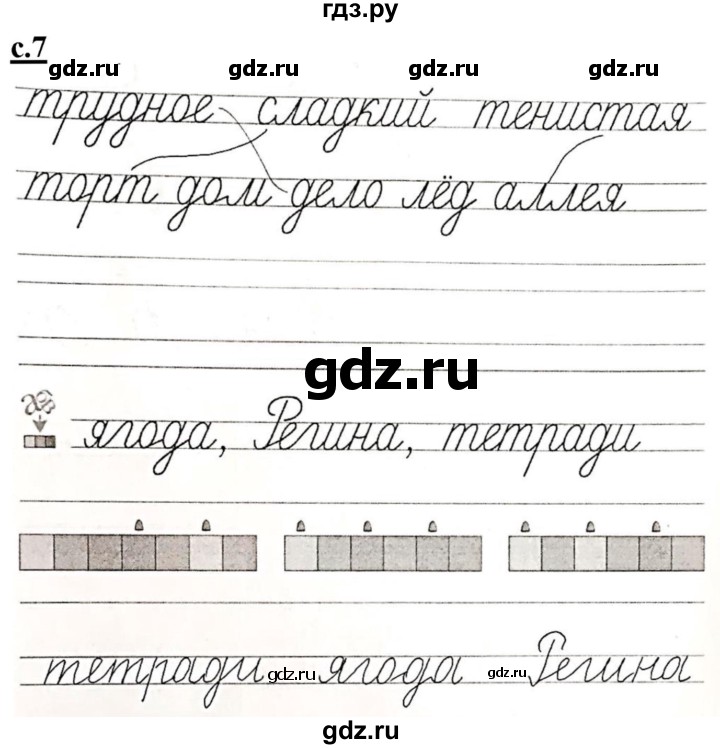 гдз.ру
с.7
gdz.ru gdz.ru gdz.ru gdz.ru
трудное сладкий тенистая
торт дом дело лёд аллея
gdz.ru
ягода, Регина, тетради
тетради gdz.ru ягода gdz.ru Регина
gdz.ru